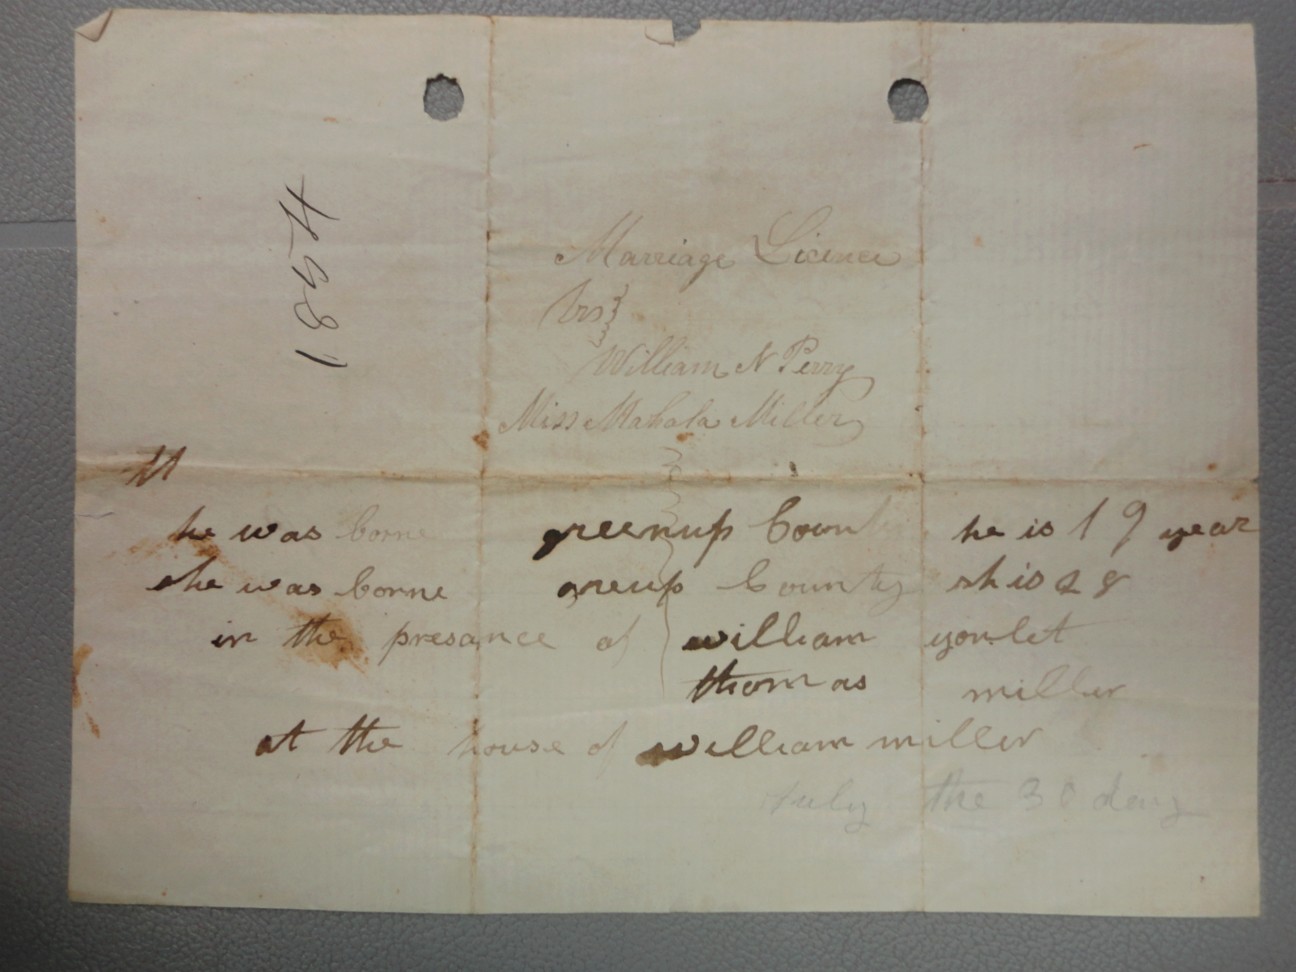 1854
Marriage Licence
vs
William N Perry
Miss Mahala Miller
he was borne greenup County he is 19 year
she was borne greup County sh is 28
in the presance of william
thomas miller
at the house of william miller
July the 30 day